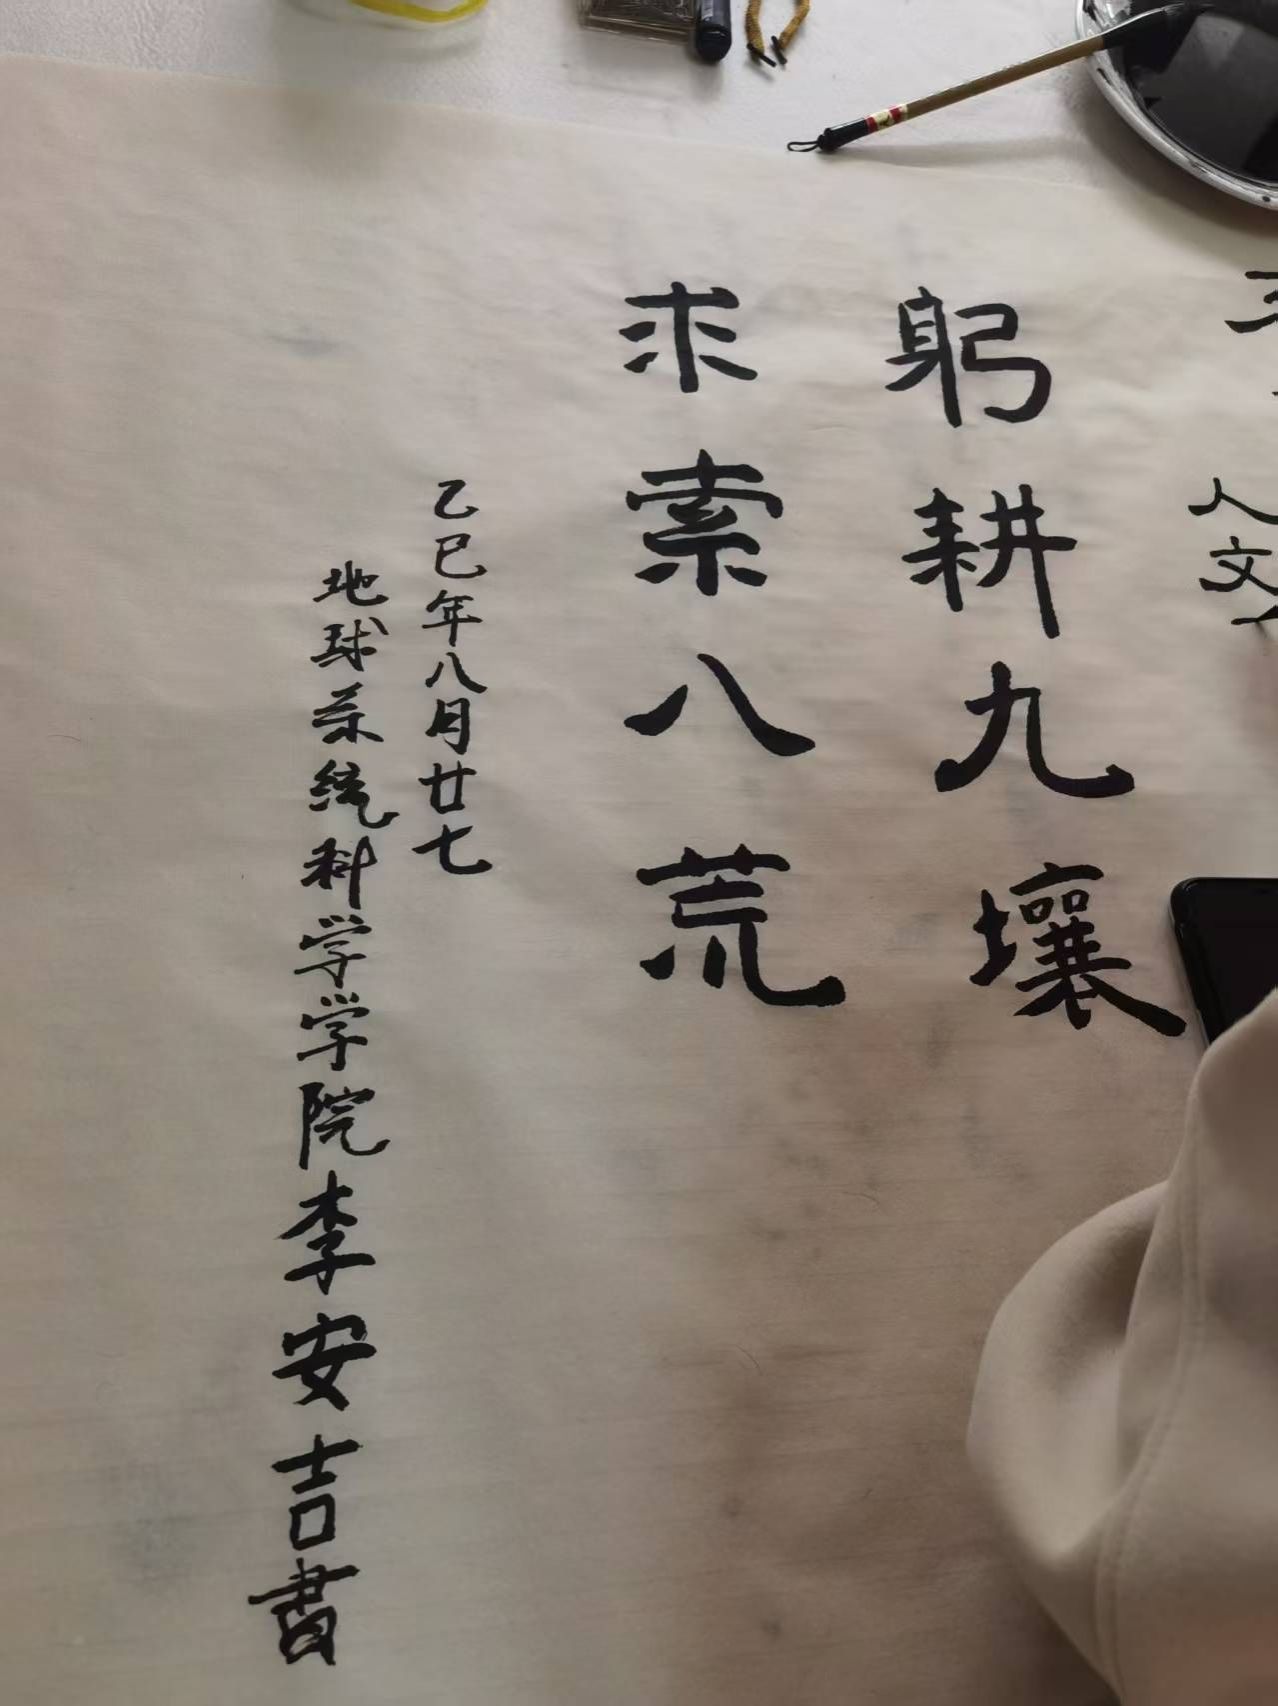 人文
躬耕九壤
求索八荒
乙巳年八月廿七
地球系统科学学院李安吉書